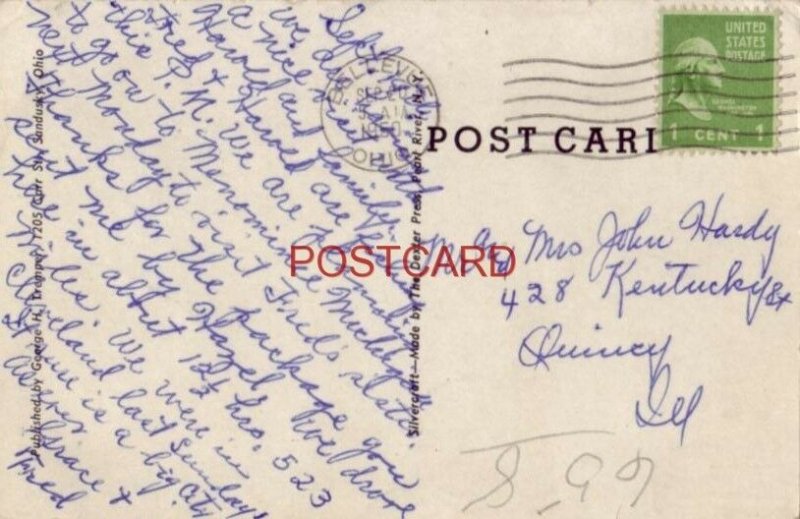 Sept
we are
a nice visit with
Harold and family.
Fred & Harold are fishing
this P.M. We are planning
to go on to Menominee Mich
next Monday to visit Fred's sister.
Thanks for the package you
sent me by Hazel. We drove
here in about 12½ hrs. 523
miles. We were in
Cleveland last Sunday
It sure is a big city
as ever
Grace &
Fred
Published by George H. 1205 Carr St., Sandusky, Ohio
Silvercraft—Made by The Dexter Press, Pearl River, N.Y.
BELLEVUE
SEP
AM
OHIO
UNITED
STATES
POSTAGE
1 CENT 1
POST CARD
POSTCARD
Mr and Mrs John Hardy
428 Kentucky St
Quincy
Ill